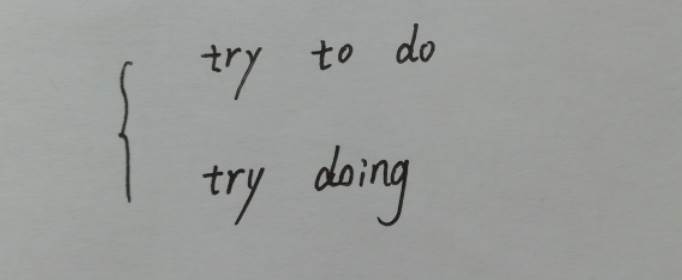 try to do
try doing